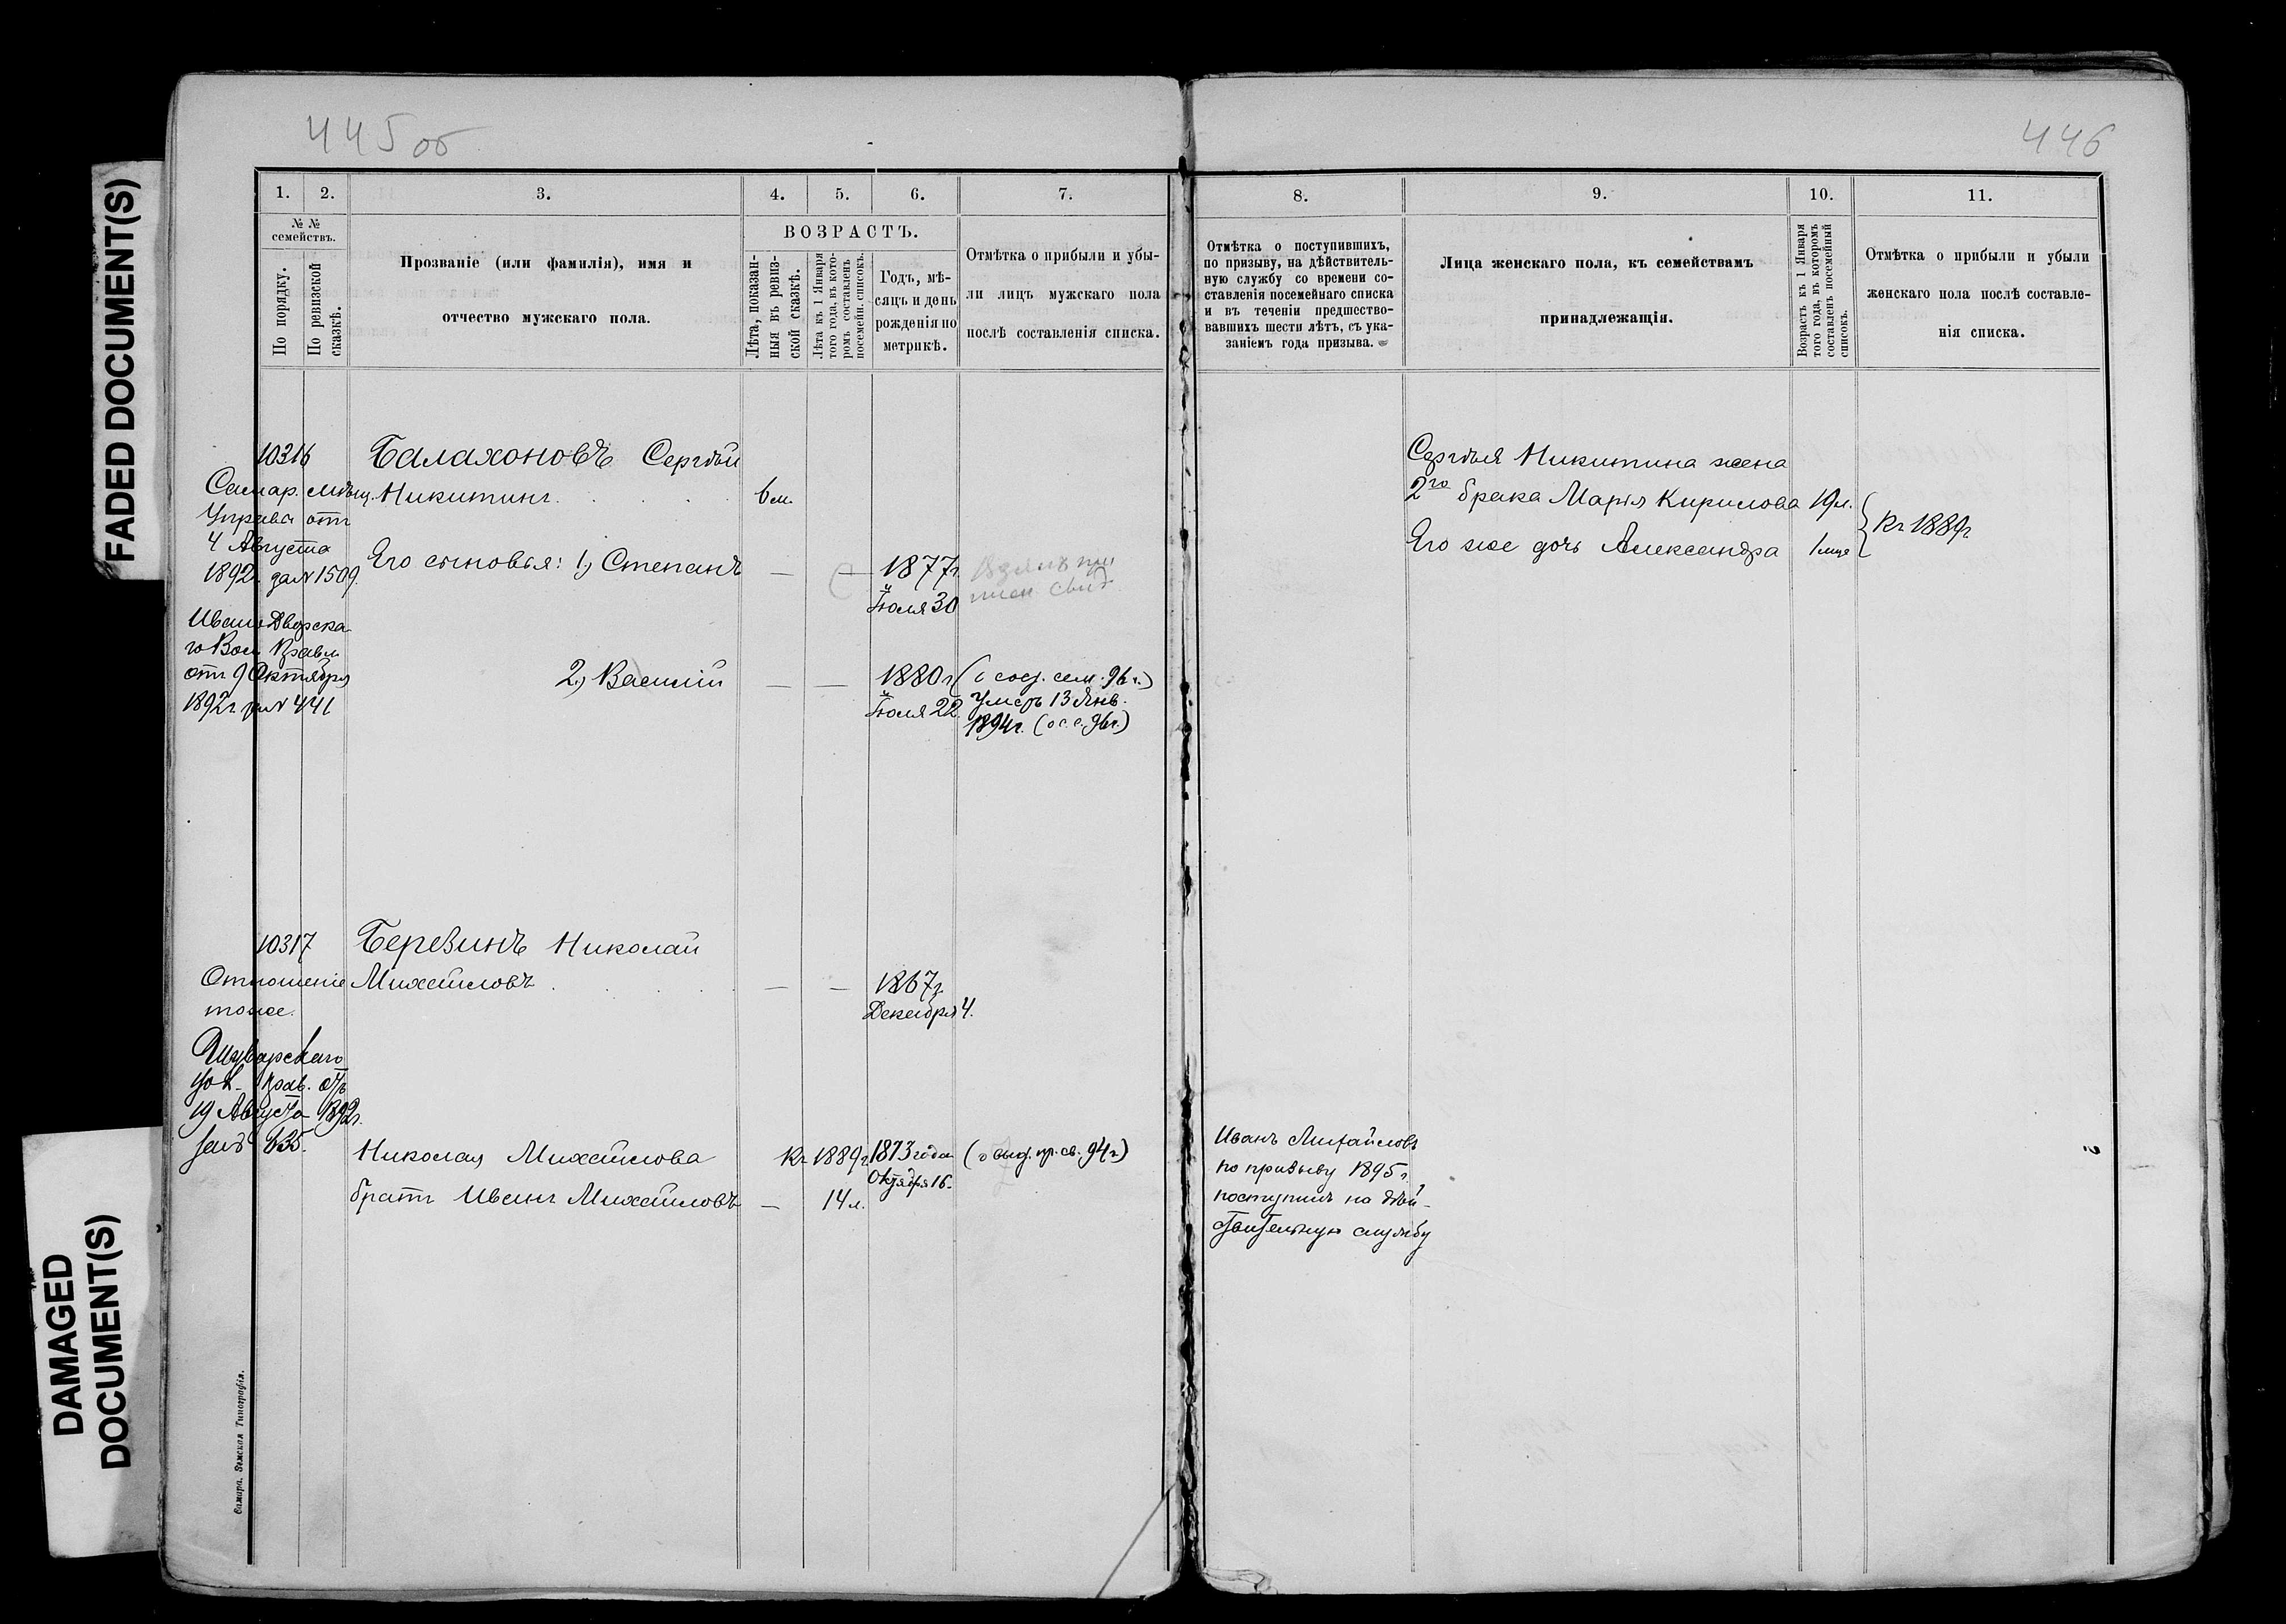 445 об
446
FADED DOCUMENT(S)
DAMAGED
DOCUMENT(S)
1.
2.
3.
4.
5.
6.
7.
№ №
семействъ.
По порядку.
По ревизской
сказкѣ.
Прозваніе (или фамилія), имя и
отчество мужскаго пола.
ВОЗРАСТЪ.
Лѣта, показан-
ныя въ ревиз-
ской сказкѣ.
Лѣта къ 1 Января
того года, въ кото-
ромъ составленъ
посемейн. списокъ.
Годъ, мѣ-
сяцъ и день
рожденія по
метрикѣ.
Отмѣтка о прибыли и убы-
ли лицъ мужскаго пола
послѣ составленія списка.
10316
Самар. мѣщ.
Управа отъ
4 Августа
1892г. за № 1509.
Дворска-
го Вол. Правл.
отъ 9 Октября
1892г. за № 441
Балахоновъ Сергѣй
Никитинъ
6 м.
Его сыновья: 1, Степанъ — — 1877г.
Іюля 30
2, Василій — — 1880г. (о соед. сем. 96г.)
Іюля 22. Умеръ 13 Янв.
1894г. (о с. с. 96г.)
10317
Отношеніе
тоже.
прав. отъ
19 Августа 1892г.
за № 635.
Березинъ Николай
Михайловъ — — 1867г.
Декабря 4.
Николая Михайлова Къ 1889г. 1873 года (о выд. пр. св. 94г.)
Октября 16.
братъ Иванъ Михайловъ — 14 л.
Самара. Земская Типографія.
8.
9.
10.
11.
Отмѣтка о поступившихъ,
по призыву, на дѣйствитель-
ную службу со времени со-
ставленія посемейнаго списка
и въ теченіи предшество-
вавшихъ шести лѣтъ, съ ука-
заніемъ года призыва.
Лица женскаго пола, къ семействамъ
принадлежащія.
Возрастъ къ 1 Января
того года, въ которомъ
составленъ посемейный
списокъ.
Отмѣтка о прибыли и убыли
женскаго пола послѣ составле-
нія списка.
Сергѣя Никитина жена
2го брака Марія Кирилова 19 л.
Его же дочь Александра 1 мца
Къ 1889г
Иванъ Михайловъ
по призыву 1895 г.
поступилъ на дѣй-
ствительную службу